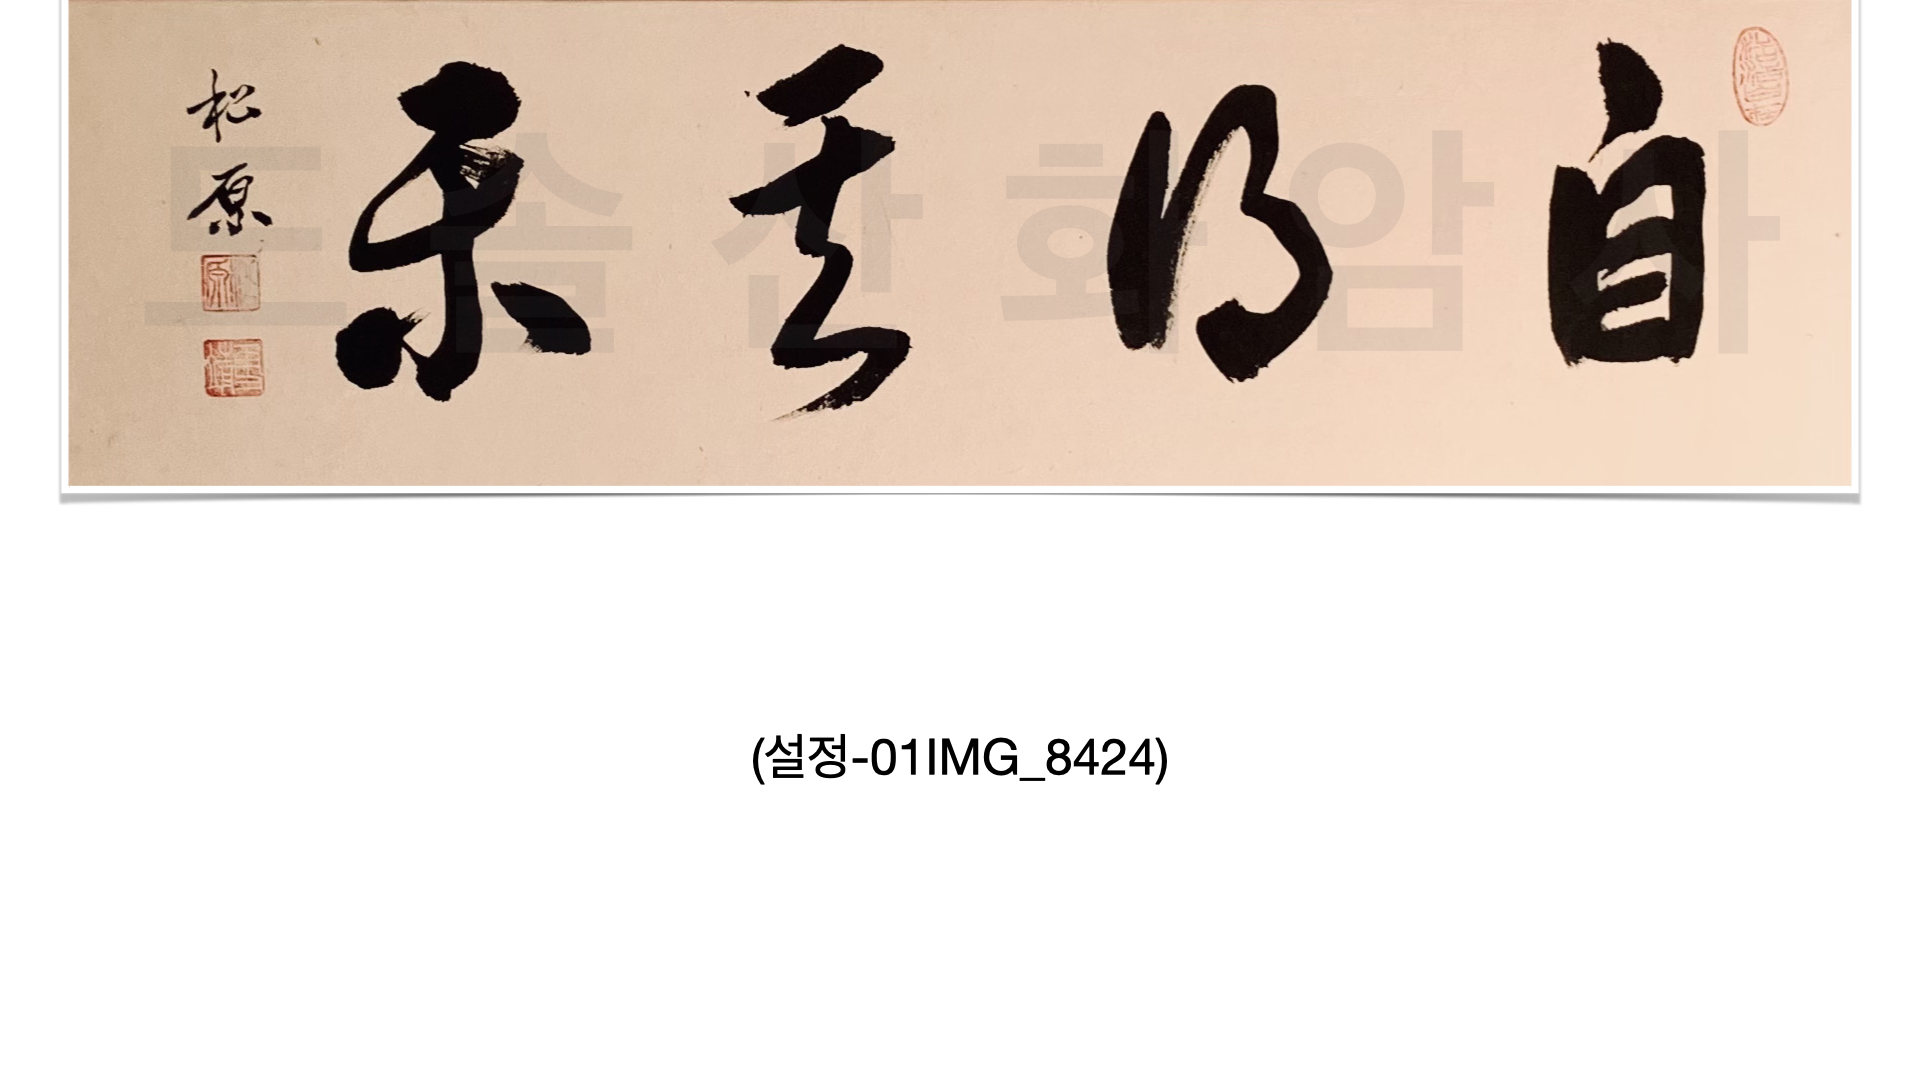 自得其樂
松原
도솔산 화암사
(설정-01IMG_8424)